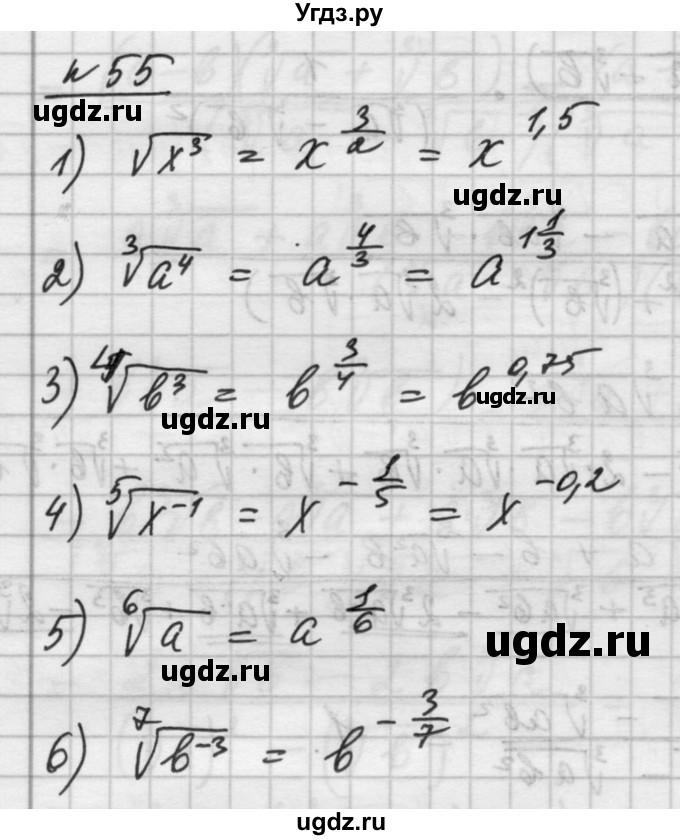 Угдз.ру
№ 55
ugdz.ru
1) √x³ = x^(3/2) = x^1,5
ugdz.ru
2) ∛a⁴ = a^(4/3) = a^(1 1/3)
3) ∜b³ = b^(3/4) = b^0,75
ugdz.ru
ugdz.ru
4) ⁵√x⁻¹ = x^(-1/5) = x^(-0,2)
5) ⁶√a = a^(1/6)
ugdz.ru
ugdz.ru
6) ⁷√b⁻³ = b^(-3/7)
ugdz.ru